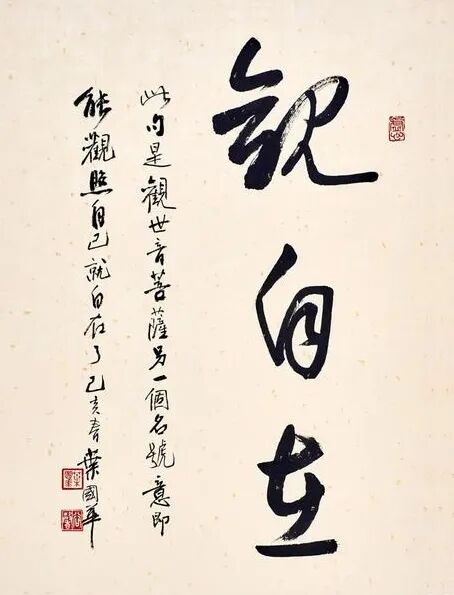 觀自在
此句是觀世音菩薩另一個名號意即
能觀照自己就自在了己亥春葉國華